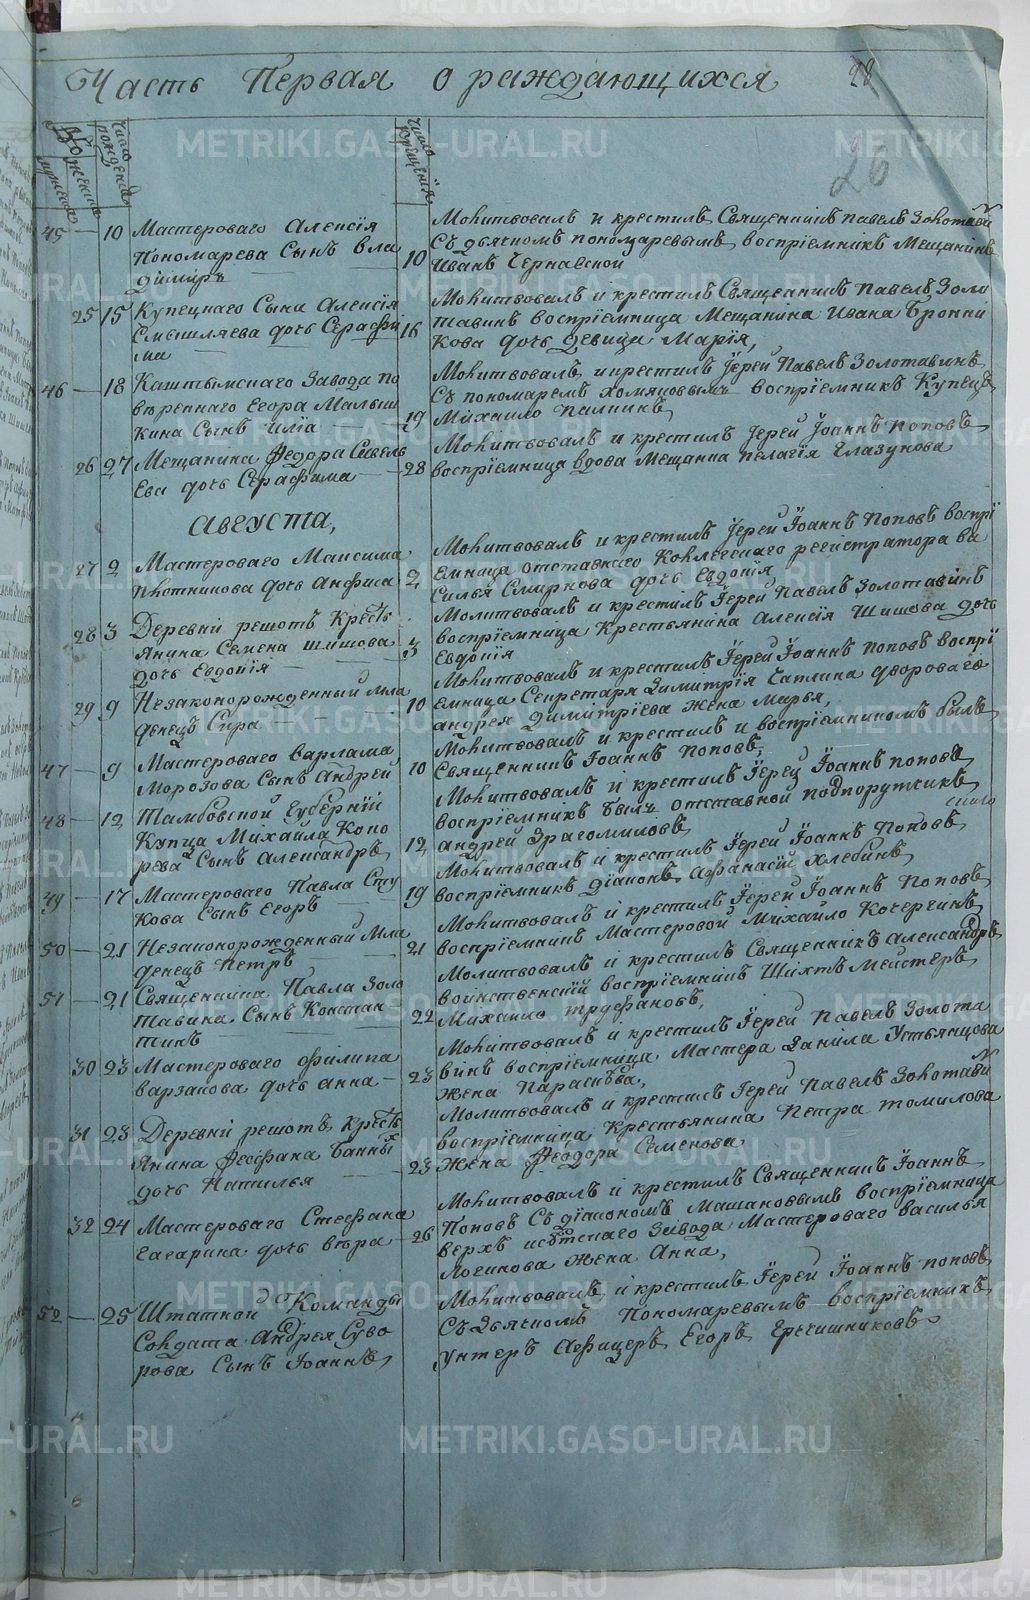 Часть Первая о раждающихся
28
26
Число рождения
Число крещения
мужеска
женска
45 — 10 Мастероваго Алексія
Пономарева Сынъ Вла
димиръ
10
Молитвовалъ и крестилъ Священникъ павелъ Золотави
Съ дьячкомъ пономаревымъ, воспріемникъ Мещанинъ
Иванъ Чернавской
25 15 Купецкаго Сына Алексія
Смышляева дочь Серафи
ма —
16
Молитвовалъ и крестилъ Священникъ Павелъ Золо
тавинъ воспріемница Мещанина Ивана Бронни
кова дочь девица Марія,
46 — 18 Каштымскаго Завода по
вѣреннаго Егора Малыш
кина Сынъ илїа —
19
Молитвовалъ и крестилъ Іерей Павелъ Золотавинъ
Съ пономаремъ хомяковымъ воспріемникъ Купецъ
Михаило палкинъ
26 27 Мещанина Федора Савель
Ева дочь Серафима —
28
Молитвовалъ и крестилъ Іерей Іоаннъ поповъ
воспріемница вдова Мещанка пелагія Глазунова
Августа,
27 2 Мастероваго Максима
Плотникова дочь Анфиса
2
Молитвовалъ и крестилъ Іерей Іоаннъ поповъ воспрі
Емница отставнаго Коллежскаго регистратора ва
Силья Смирнова дочь Евдокія
28 3 Деревни решотъ Кресть
янина Семена шишова
дочь Евдокія —
3
Молитвовалъ и крестилъ Іерей Павелъ Золотавинъ
воспріемница Крестьянина Алексія Шишова дочь
Евдокія
29 9 Незаконорожденный Мла
денецъ Кира —
10
Молитвовалъ и крестилъ Іерей Іоаннъ поповъ воспрі
Емница Секретаря Димитрія Чаплина двороваго
андрея димитріева жена Марья,
47 — 9 Мастероваго варлама
Морозова Сынъ Андрей
10
Молитвовалъ и крестилъ и воспріемникомъ былъ
Священникъ Іоаннъ Поповъ,
48 — 12 Тамбовской Губерніи
Купца Михаила Копо
рева Сынъ Александръ,
12
Молитвовалъ и крестилъ Іерей Іоаннъ поповъ
воспріемникъ былъ отставной подпоручикъ
андрей Драгомиловъ
49 — 17 Мастероваго Павла Сту
Кова Сынъ Егоръ —
19
Молитвовалъ и крестилъ Іерей Іоаннъ Поповъ
воспріемникъ діаконъ Афанасій Хлебинъ,
50 — 21 Незаконорожденный Мла
денецъ Петръ —
21
Молитвовалъ и крестилъ Іерей Іоаннъ Поповъ
воспріемникъ Мастеровой Михайло Кочергинъ,
51 — 21 Священника Павла Золо
тавина Сынъ Констан
тинъ —
22
Молитвовалъ и крестилъ Священникъ Александръ
воинственскій воспріемникъ Шихтъ Мейстеръ
Михаило трусфановъ,
30 23 Мастероваго филипа
варзакова дочь анна —
23
Молитвовалъ и крестилъ Іерей Павелъ Золота
винъ воспріемница Мастера Данила Устьянцова
жена Парасковья,
31 23 Деревни решотъ Кресть
янина Феофана Банны
дочь Наталья —
23
Молитвовалъ и крестилъ Іерей Павелъ Золотави
воспріемница Крестьянина Петра томилова
жена Федора Семенова
32 24 Мастероваго Стефана
Гагарина дочь вѣра —
26
Молитвовалъ и крестилъ Священникъ Іоаннъ
Поповъ Съ діакономъ Машановымъ воспріемница
верхъ исетскаго Завода Мастероваго василья
Логинова жена Анна,
52 — 25 Штатной Команды
Солдата Андрея Суво
рова Сынъ Іоаннъ,
Молитвовалъ и крестилъ Іерей Іоаннъ поповъ
Съ Дьячкомъ Пономаревымъ воспріемникъ
унтеръ Афицеръ Егоръ Гречишниковъ
METRIKI.GASO-URAL.RU